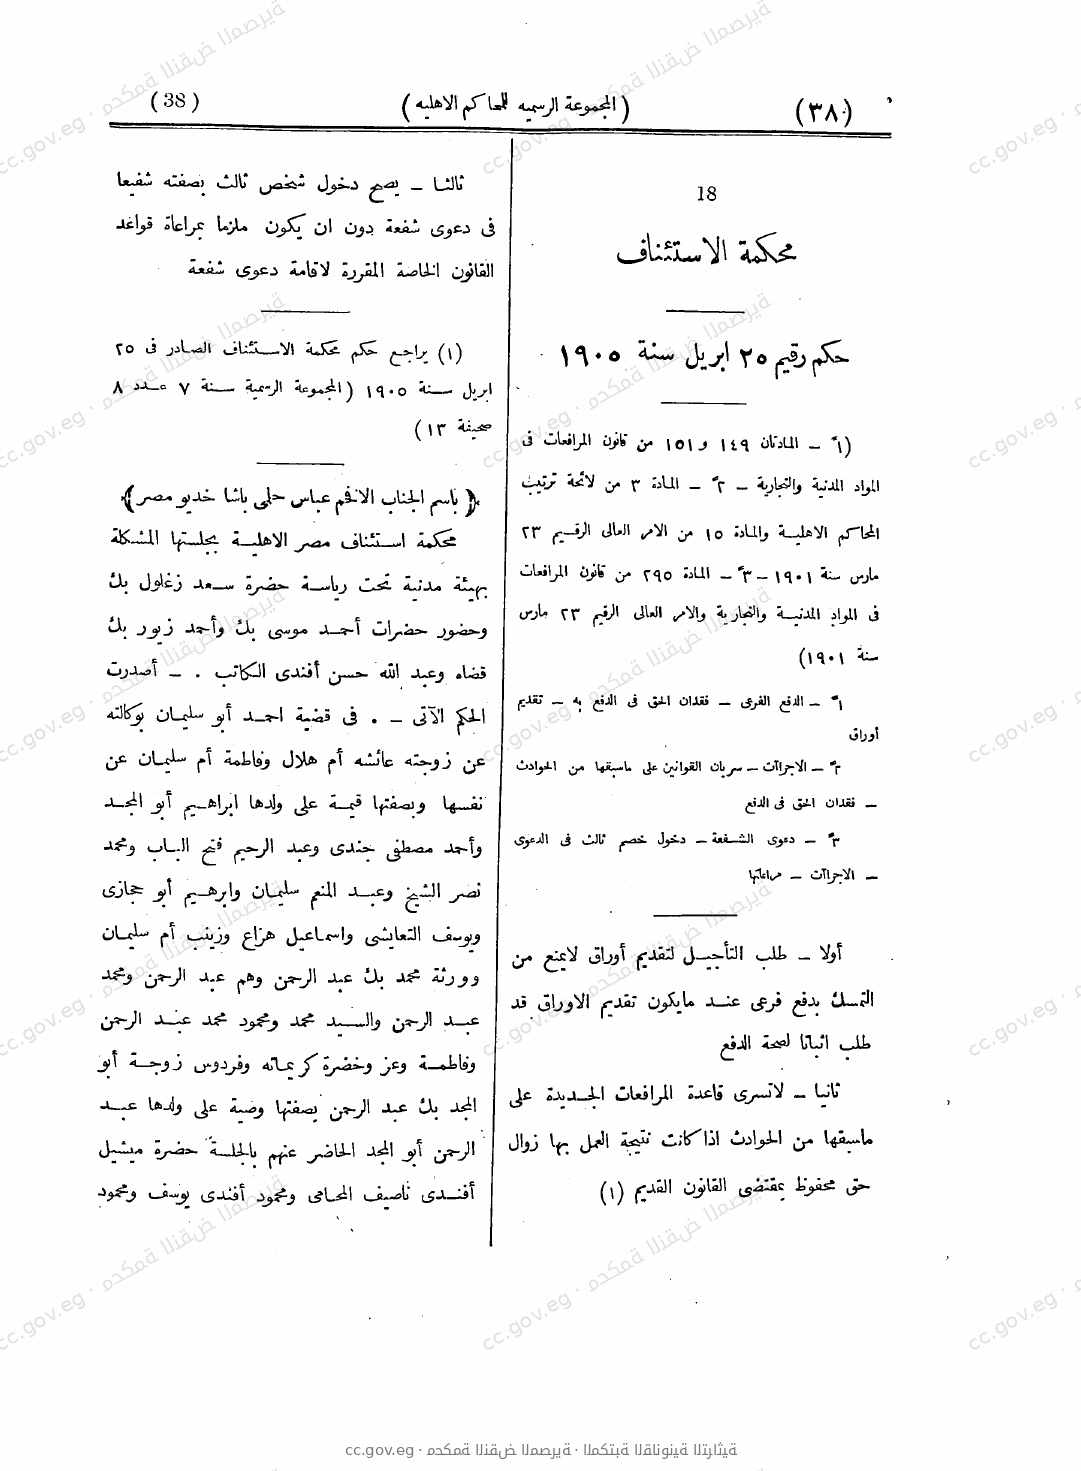 (٣٨)
(المجموعة الرسميه للمحاكم الاهليه)
(38)
18
محكمة الاستئناف
حكم رقيم ٢٥ ابريل سنة ١٩٠٥
(١ً – المادتان ١٤٩ و ١٥١ من قانون المرافعات فى
المواد المدنية والتجارية – ٢ً – المادة ٣ من لائحة ترتيب
المحاكم الاهلية والمادة ١٥ من الامر العالى الرقيم ٢٣
مارس سنة ١٩٠١ – ٣ً – المادة ٢٩٥ من قانون المرافعات
فى المواد المدنية والتجارية والامر العالى الرقيم ٢٣ مارس
سنة ١٩٠١)
١ً – الدفع الفرعى – فقدان الحق فى الدفع به – تقديم
أوراق
٢ً – الاجراآت – سريان القوانين على ماسبقها من الحوادث
– فقدان الحق فى الدفع
٣ً – دعوى الشفعة – دخول خصم ثالث فى الدعوى
– الاجراآت – مراعاتها
أولا – طلب التأجيل لتقديم أوراق لايمنع من
التمسك بدفع فرعى عند مايكون تقديم الاوراق قد
طلب اثباتا لصحة الدفع
ثانيا – لاتسرى قاعدة المرافعات الجديدة على
ماسبقها من الحوادث اذا كانت نتيجة العمل بها زوال
حق محفوظ بمقتضى القانون القديم (١)
ثالثا – يصح دخول شخص ثالث بصفته شفيعا
فى دعوى شفعة دون ان يكون ملزما بمراعاة قواعد
القانون الخاصة المقررة لاقامة دعوى شفعة
(١) يراجع حكم محكمة الاستئناف الصادر فى ٢٥
ابريل سنة ١٩٠٥ (المجموعة الرسمية سنة ٧ عدد ٨
صحيفة ١٣)
﴿باسم الجناب الافخم عباس حلمى باشا خديو مصر﴾
محكمة استئناف مصر الاهلية بجلستها المشكلة
بهيئة مدنية تحت رياسة حضرة سعد زغلول بك
وحضور حضرات أحمد موسى بك وأحمد زيور بك
قضاه وعبد الله حسن أفندى الكاتب . – أصدرت
الحكم الآتى – . فى قضية احمد أبو سليمان بوكالته
عن زوجته عائشه أم هلال وفاطمة أم سليمان عن
نفسها وبصفتها قيمة على ولدها ابراهيم أبو المجد
وأحمد مصطفى جندى وعبد الرحيم فتح الباب ومحمد
نصر الشيخ وعبد المنعم سليمان وابرهيم أبو حجازى
ويوسف التعايشى واسماعيل هزاع وزينب أم سليمان
وورثة محمد بك عبد الرحمن وهم عبد الرحمن ومحمد
عبد الرحمن والسيد محمد ومحمود محمد عبد الرحمن
وفاطمة وعز وخضرة كريماته وفردوس زوجة أبو
المجد بك عبد الرحمن بصفتها وصية على ولدها عبد
الرحمن أبو المجد الحاضر عنهم بالجلسة حضرة ميشيل
أفندى ناصيف المحامى ومحمود أفندى يوسف ومحمود
cc.gov.eg · محكمة النقض المصرية · المكتبة القانونية التراثية